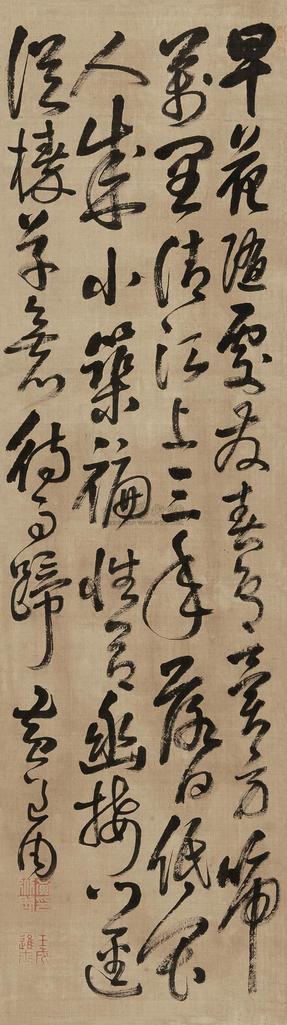 早花隨處發春鳥異方啼
萬里清江上三年落日低畏
人成小築褊性合幽棲門徑
從榛草無心待馬蹄 黃道周